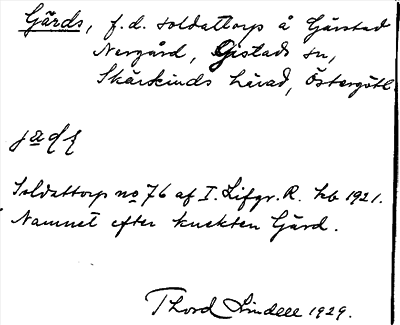 Gärds, f.d. soldattorp å Gärstad
Nergård, Gistads sn,
Skärkinds härad, Östergötl.
Soldattorp no 76 af I. Lifgr. R. kb 1921.
Namnet efter knekten Gärd.
Thord Lindell 1929.